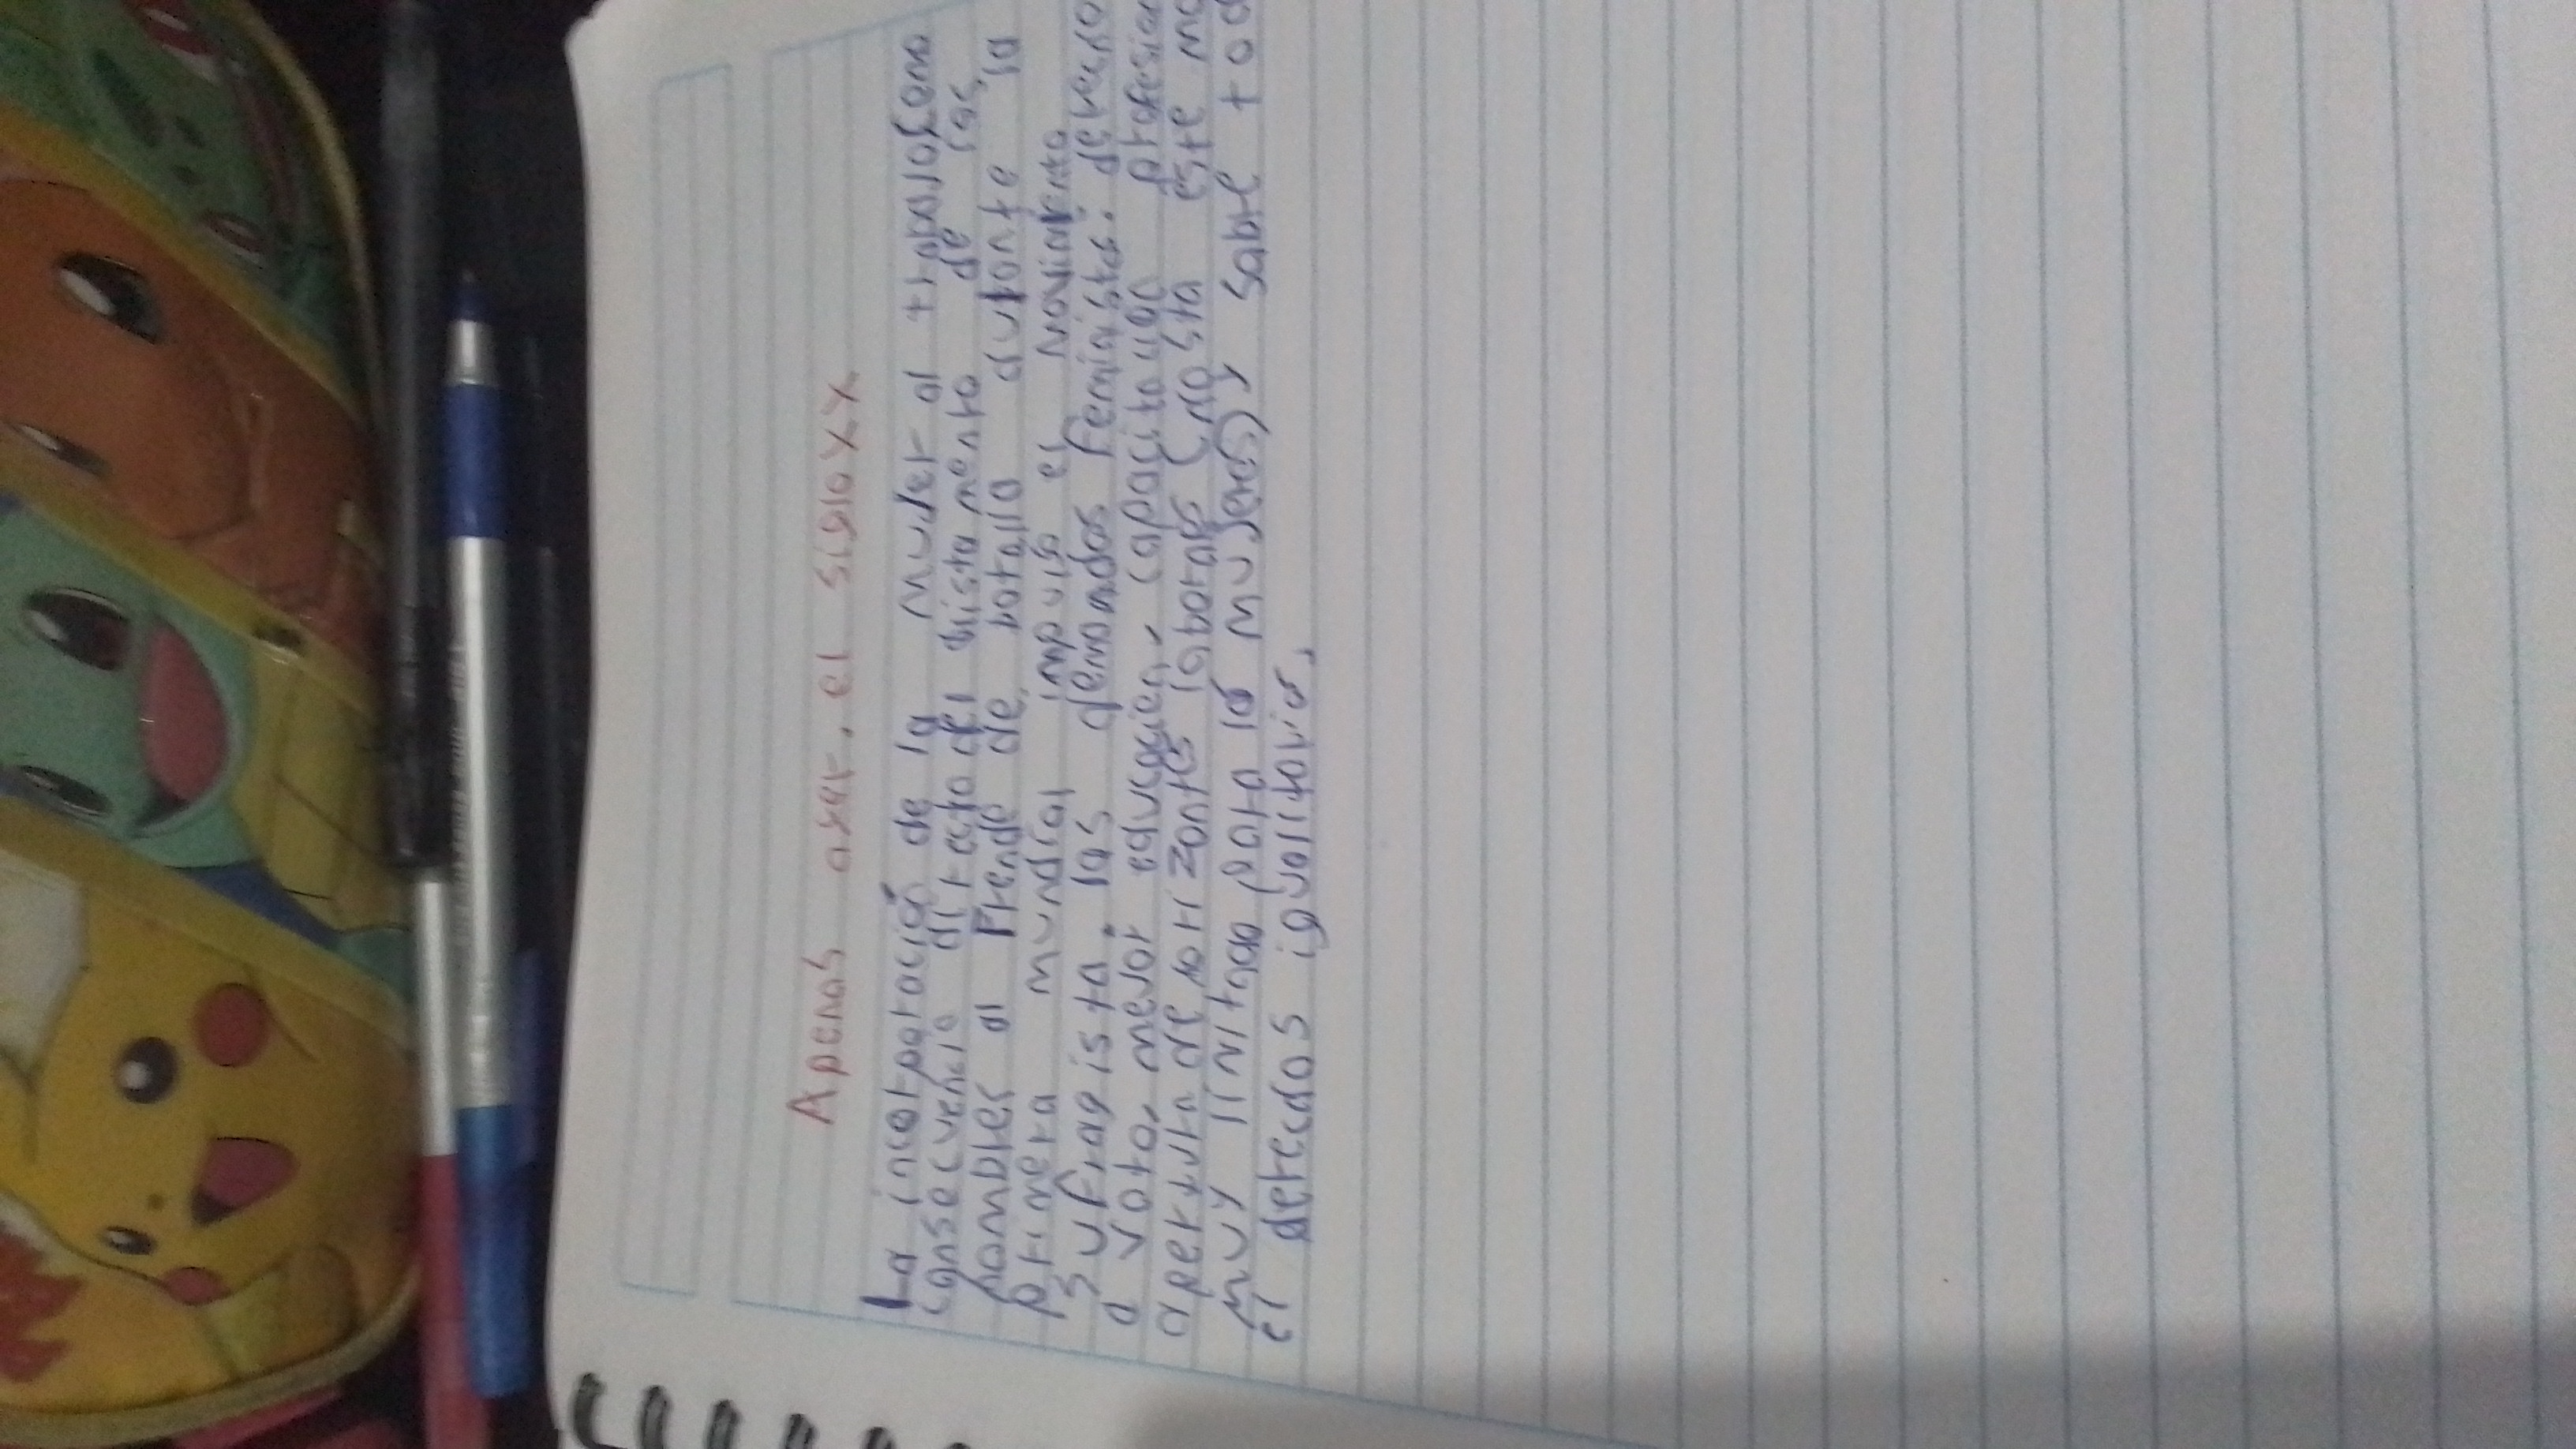 Apenas ayer, el siglo XX
La incorporación de la mujer al trabajo, como
consecuencia directa del alistamiento de los
hombres al frende de batalla durante la
primera mundial impulsó el movimiento
sufragista, las demandas feministas: derecho
a voto, mejor educacien, capacitación profesion
apertura de horizontes laborales (no sta este mo
muy limitada para la mujeres) y sabre tod
el derecdos igualitario,